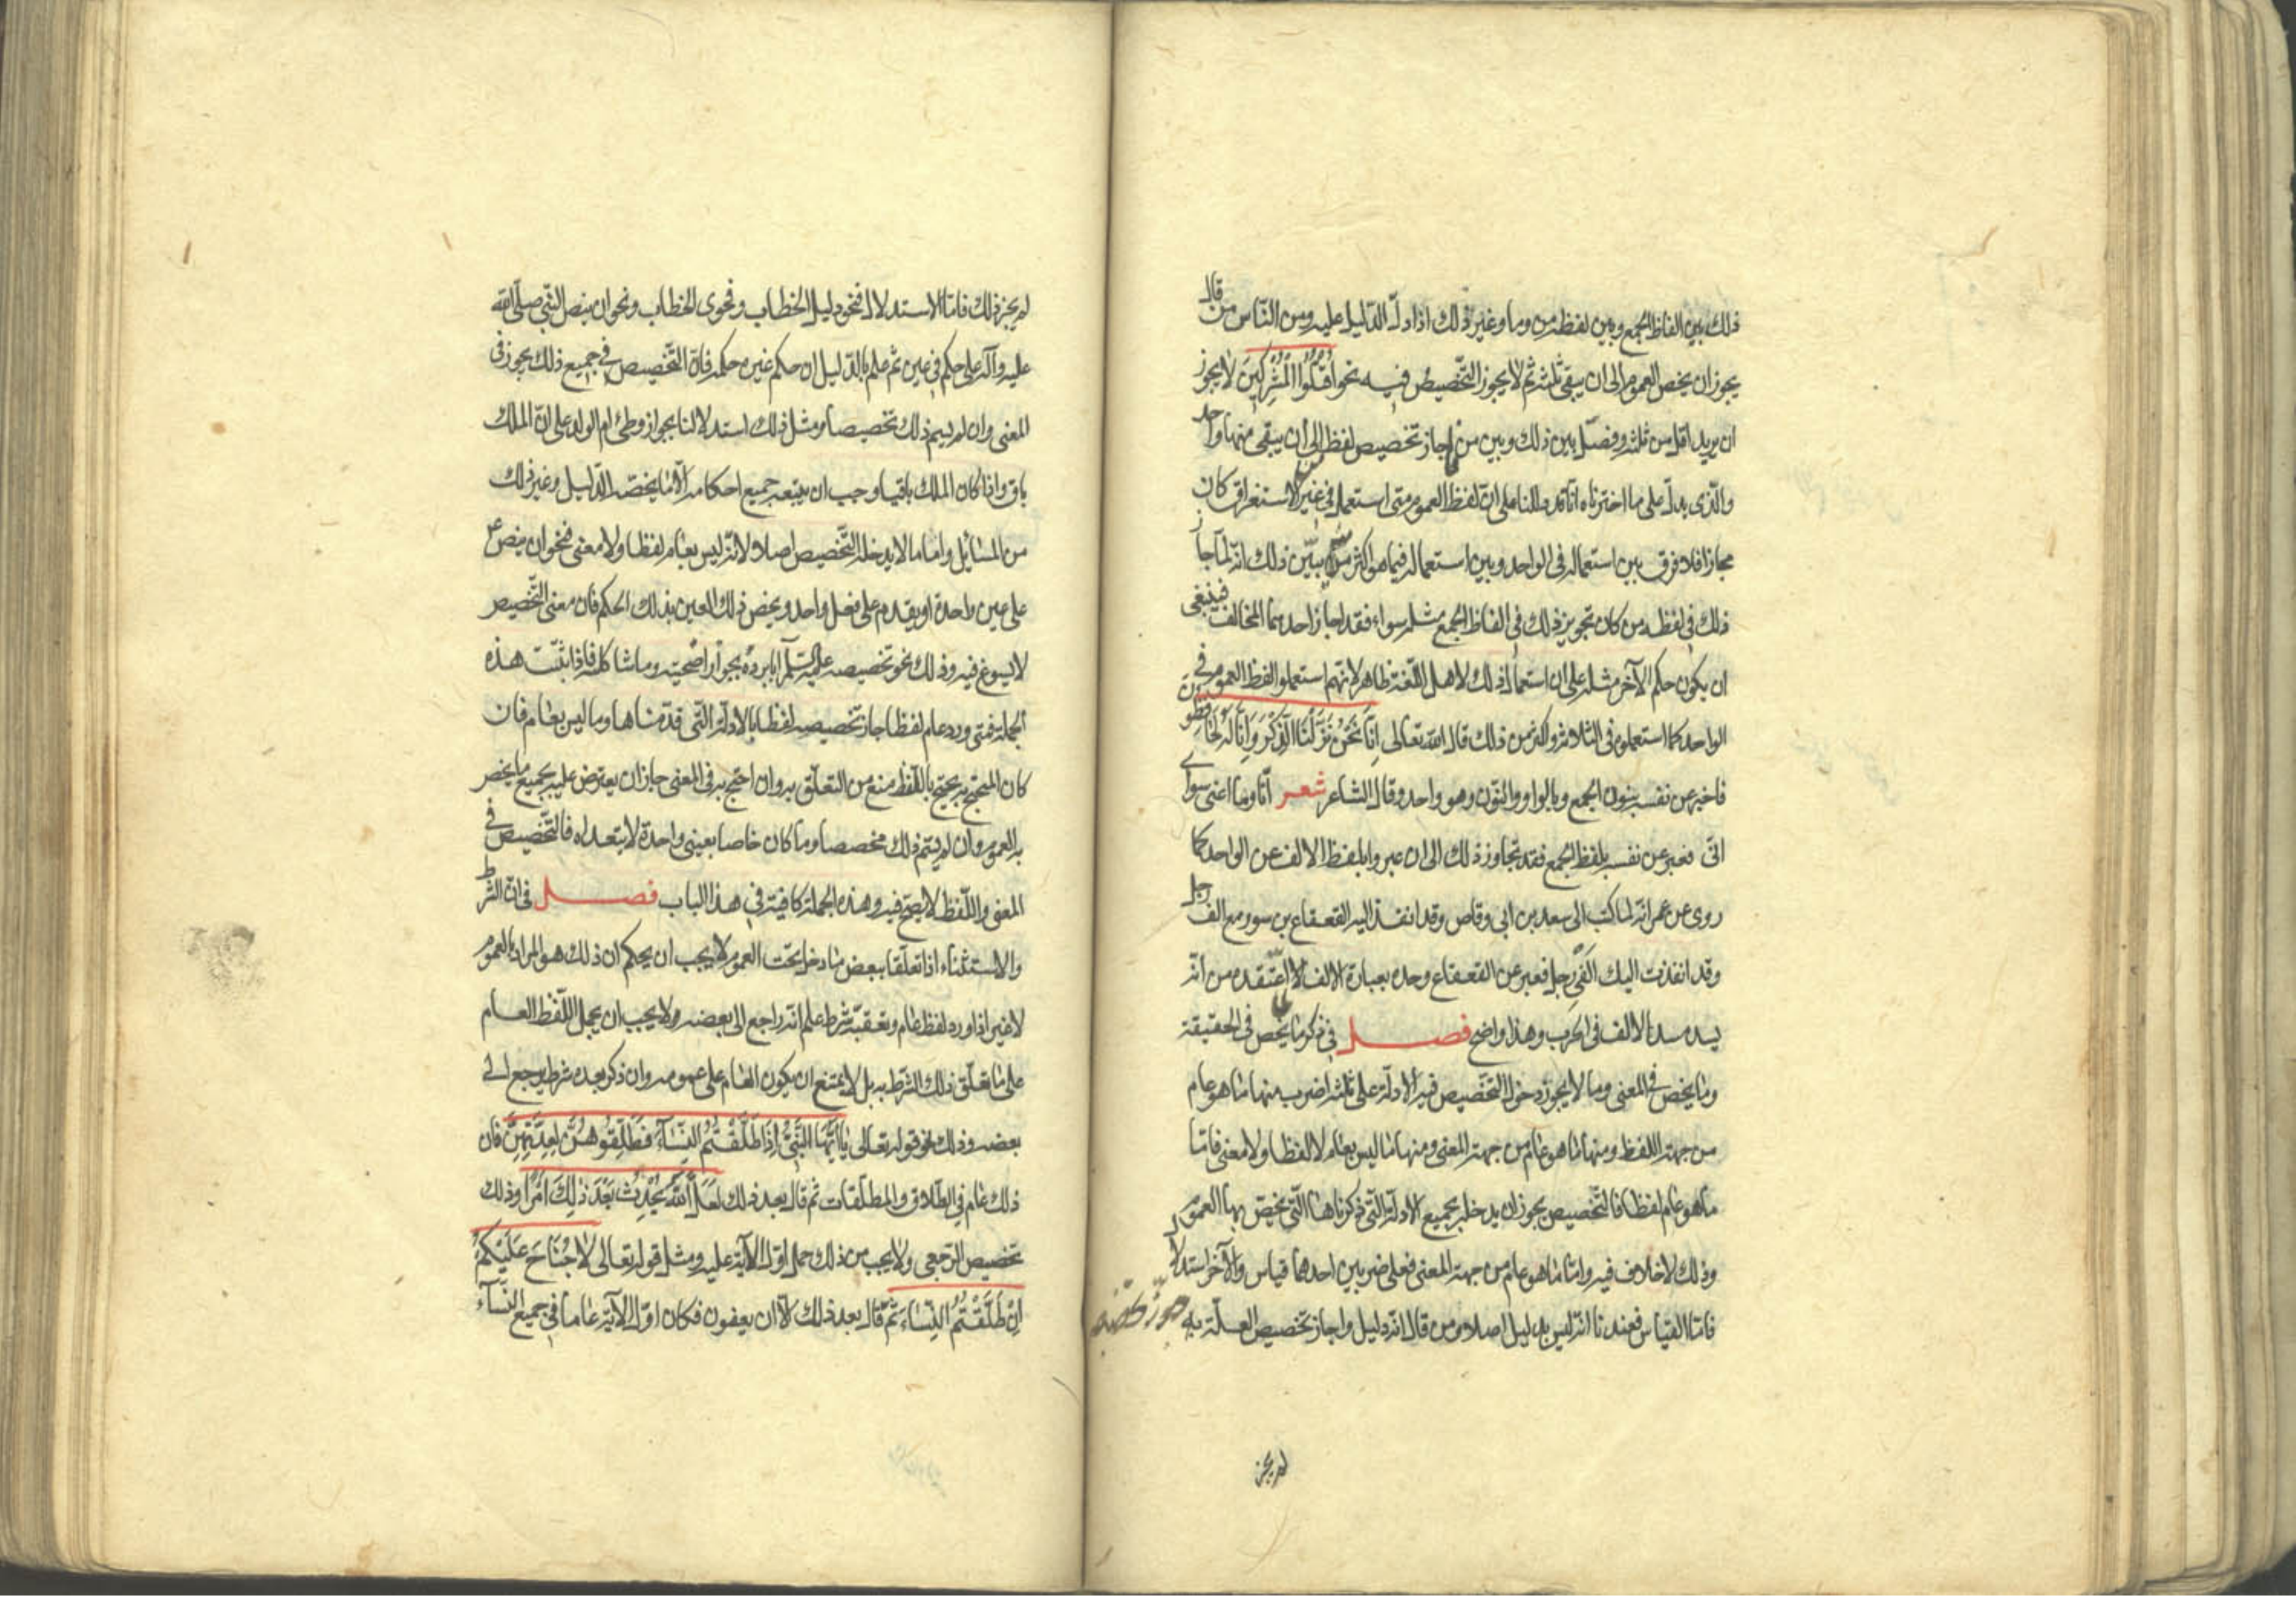 ذلك بين الفاظ الجمع وبين لفظة من وما وغير ذلك اذا دلّ الدّليل عليه ومن النّاس من قال
يجوز ان يخص العموم الى ان يبقى ثلثة ثم لا يجوز التّخصيص فيه نحو اقْتُلُوا الْمُشْرِكِينَ لا يجوز
ان يريد اقل من ثلثة وفصّل بين ذلك وبين من اجاز تخصيص لفظ الى ان يبقى منها واحد
والّذى يدلّ على ما اخترناه انّا قد دللنا على انّ لفظ العموم متى استعمل فى غير الاستغراق كان
مجازا فلا فرق بين استعماله فى الواحد وبين استعماله فيما هو اكثر منه يبيّن ذلك انّه لمّا جاز
ذلك فى لفظة من كان تجويز ذلك فى الفاظ الجمع مثله سواء فقد اجاز احدهما المخالف فينبغى
ان يكون حكم الآخر مثله على ان استعمال ذلك لاهل اللّغة ظاهر لانّهم استعملوا لفظ العموم فى
الواحد كما استعملوه فى الثلاثة واكثر من ذلك قال الله تعالى اِنَّا نَحْنُ نَزَّلْنَا الذِّكْرَ وَاِنَّا لَهُ لَحَافِظُونَ
فاخبر عن نفسه بنون الجمع وبالواو والنّون وهو واحد وقال الشاعر شعر انّا وما اعنى سواى
انّى فعبر عن نفسه بلفظ الجمع فقد تجاوز ذلك الى ان عبروا بلفظ الالف عن الواحد كما
روى عن عمر انّه لما كتب الى سعد بن ابى وقاص وقد انفذ اليه القعقاع بن سور مع الف رجل
وقد انفذت اليك الْفَىْ رجل فعبر عن القعقاع وحده بعبارة الالف لما اعتقده من انّه
يسد مسد الالف فى الحرب وهذا واضح فصل فى ذكر ما يخص فى الحقيقة
وما يخص فى المعنى وما لا يجوز دخول التّخصيص فيه الادلّة على ثلثة اضرب منها ما هو عام
من جهة اللفظ ومنها ما هو عام من جهة المعنى ومنها ما ليس بعام لا لفظا ولا معنى فامّا
ما هو عام لفظا فالتّخصيص يجوز ان يدخله بجميع الادلّة الّتى ذكرناها الّتى يخصّ بها العموم
وذلك لا خلاف فيه وامّا ما هو عام من جهة المعنى فعلى ضربين احدهما قياس والآخر استدلال
فامّا القياس فعندنا انّه ليس بدليل اصلا ومن قال انّه دليل واجاز تخصيص العلّة به جوّز تخصيصه
لم يجز
لم يجز ذلك فامّا الاستدلال فنحو دليل الخطاب وفحوى الخطاب ونحو ان ينص النّبىّ صلّى الله
عليه وآله على حكم فى عين ثم علم بالدّليل ان حكم غيره حكمه فانّ التّخصيص فى جميع ذلك يجوز فى
المعنى وان لم يسم ذلك تخصيصا ومثل ذلك استدلالنا بجواز وطئ ام الولد على انّ الملك
باق واذا كان الملك باقيا وجب ان يتبعه جميع احكامه الّا ما يخصّه الدّليل وغير ذلك
من المسائل وامّا ما لا يدخله التّخصيص اصلا لانّه ليس بعام لفظا ولا معنى فنحو ان ينص ع
على عين واحدة او يقدم على فعل واحد ويخص ذلك العين بذلك الحكم فان معنى التّخصيص
لا يسوغ فيه وذلك نحو تخصيصه عليه السّلم ابا بردة بجواز اضحيته وما شاكله فاذا ثبتت هذه
الجملة فمتى ورد عام لفظا جاز تخصيصه لفظا بالادلّة الّتى قدّمناها وما ليس بعام فان
كان المحتج به يحتج باللّفظ منع من التعلّق به وان احتج به فى المعنى جاز ان يعترض عليه بجميع ما يخصّ
به العموم وان لم يسم ذلك مخصصا وما كان خاصا بعين واحدة لا يتعداه فالتّخصيص فى
المعنى واللّفظ لا يصحّ فيه وهذه الجملة كافية فى هذا الباب فصل فى انّ الشّرط
والاستثناء اذا تعلّقا ببعض ما دخل تحت العموم لا يجب ان يحكم ان ذلك هو المراد بالعموم
لا غير اذا ورد لفظ عام وتعقبّه شرط علم انّه راجع الى بعضه ولا يجب ان يحمل اللّفظ العام
على ما تعلّق ذلك الشّرط به بل لا يمتنع ان يكون العام على عمومه وان ذكر بعده شرط يرجع الى
بعضه وذلك نحو قوله تعالى يَا اَيُّهَا النَّبِىُّ اِذَا طَلَّقْتُمُ النِّسَاءَ فَطَلِّقُوهُنَّ لِعِدَّتِهِنَّ فان
ذلك عام فى الطّلاق والمطلّقات ثم قال بعد ذلك لَعَلَّ اللهَ يُحْدِثُ بَعْدَ ذٰلِكَ اَمْرًا وذلك
تخصيص الرّجعى ولا يجب من ذلك حمل اوّل الآية عليه ومثل قوله تعالى لاٰ جُنَاحَ عَلَيْكُمْ
اِنْ طَلَّقْتُمُ النِّسَاءَ ثمّ قال بعد ذلك الّا ان يعفون فكان اوّل الآية عاما فى جميع النّساء